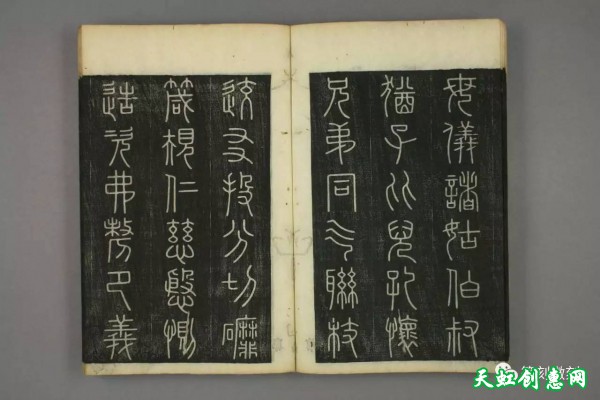 母儀諸姑伯叔
猶子比兒孔懷
兄弟同气聯枝
交友投分切磨
箴規仁慈隱惻
造次弗離卪義
天虹创惠网